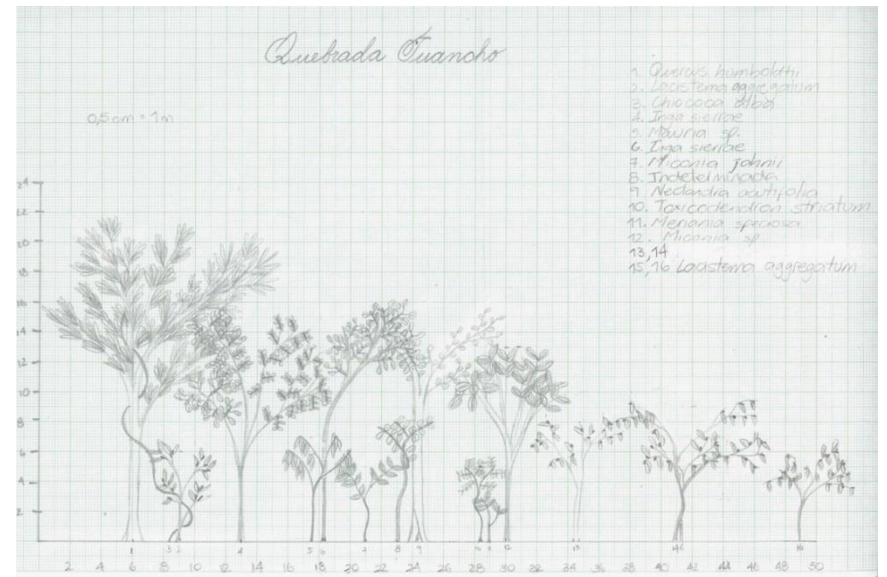 Quebrada Juancho
0,5 cm = 1m
1. Quercus humboldtii
2. Lacistema aggregatum
3. Chiococa alba
4. Inga sierrae
5. Mauria sp.
6. Inga sierrae
7. Miconia johnii
8. Indeterminada
9 Nectandra acutifolia
10. Toxicodendron striatum
11. Meriania speciosa
12. Miconia sp
13,14
15,16 Lacistema aggregatum
24
22
20
18
16
14
12
10
8
6
4
2
1 3 2 4 5 6 7 8 9 12 13
2 4 6 8 10 12 14 16 18 20 22 24 26 28 30 32 34 36 38 40 42 44 46 48 50